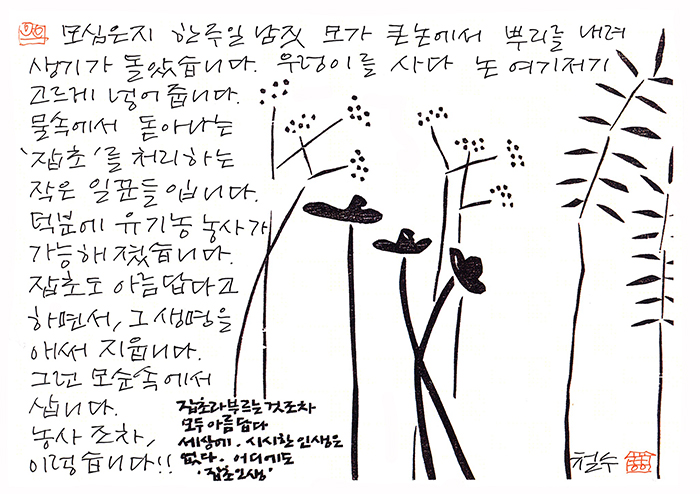 모심은지 한주일 남짓 모가 큰논에서 뿌리를 내려
생기가 돌았습니다. 우렁이를 사다 논 여기저기
고르게 넣어줍니다.
물속에서 돋아나는
'잡초'를 처리하는
작은 일꾼들입니다.
덕분에 유기농 농사가
가능해졌습니다.
잡초도 아름답다고
하면서, 그 생명을
애써 지웁니다.
그런 모순속에서
삽니다.
농사조차,
이렇습니다!!
잡초라 부르는것조차
모두 아름답다
세상에. 시시한 인생은
없다. 어디에도
'잡초인생'
철수